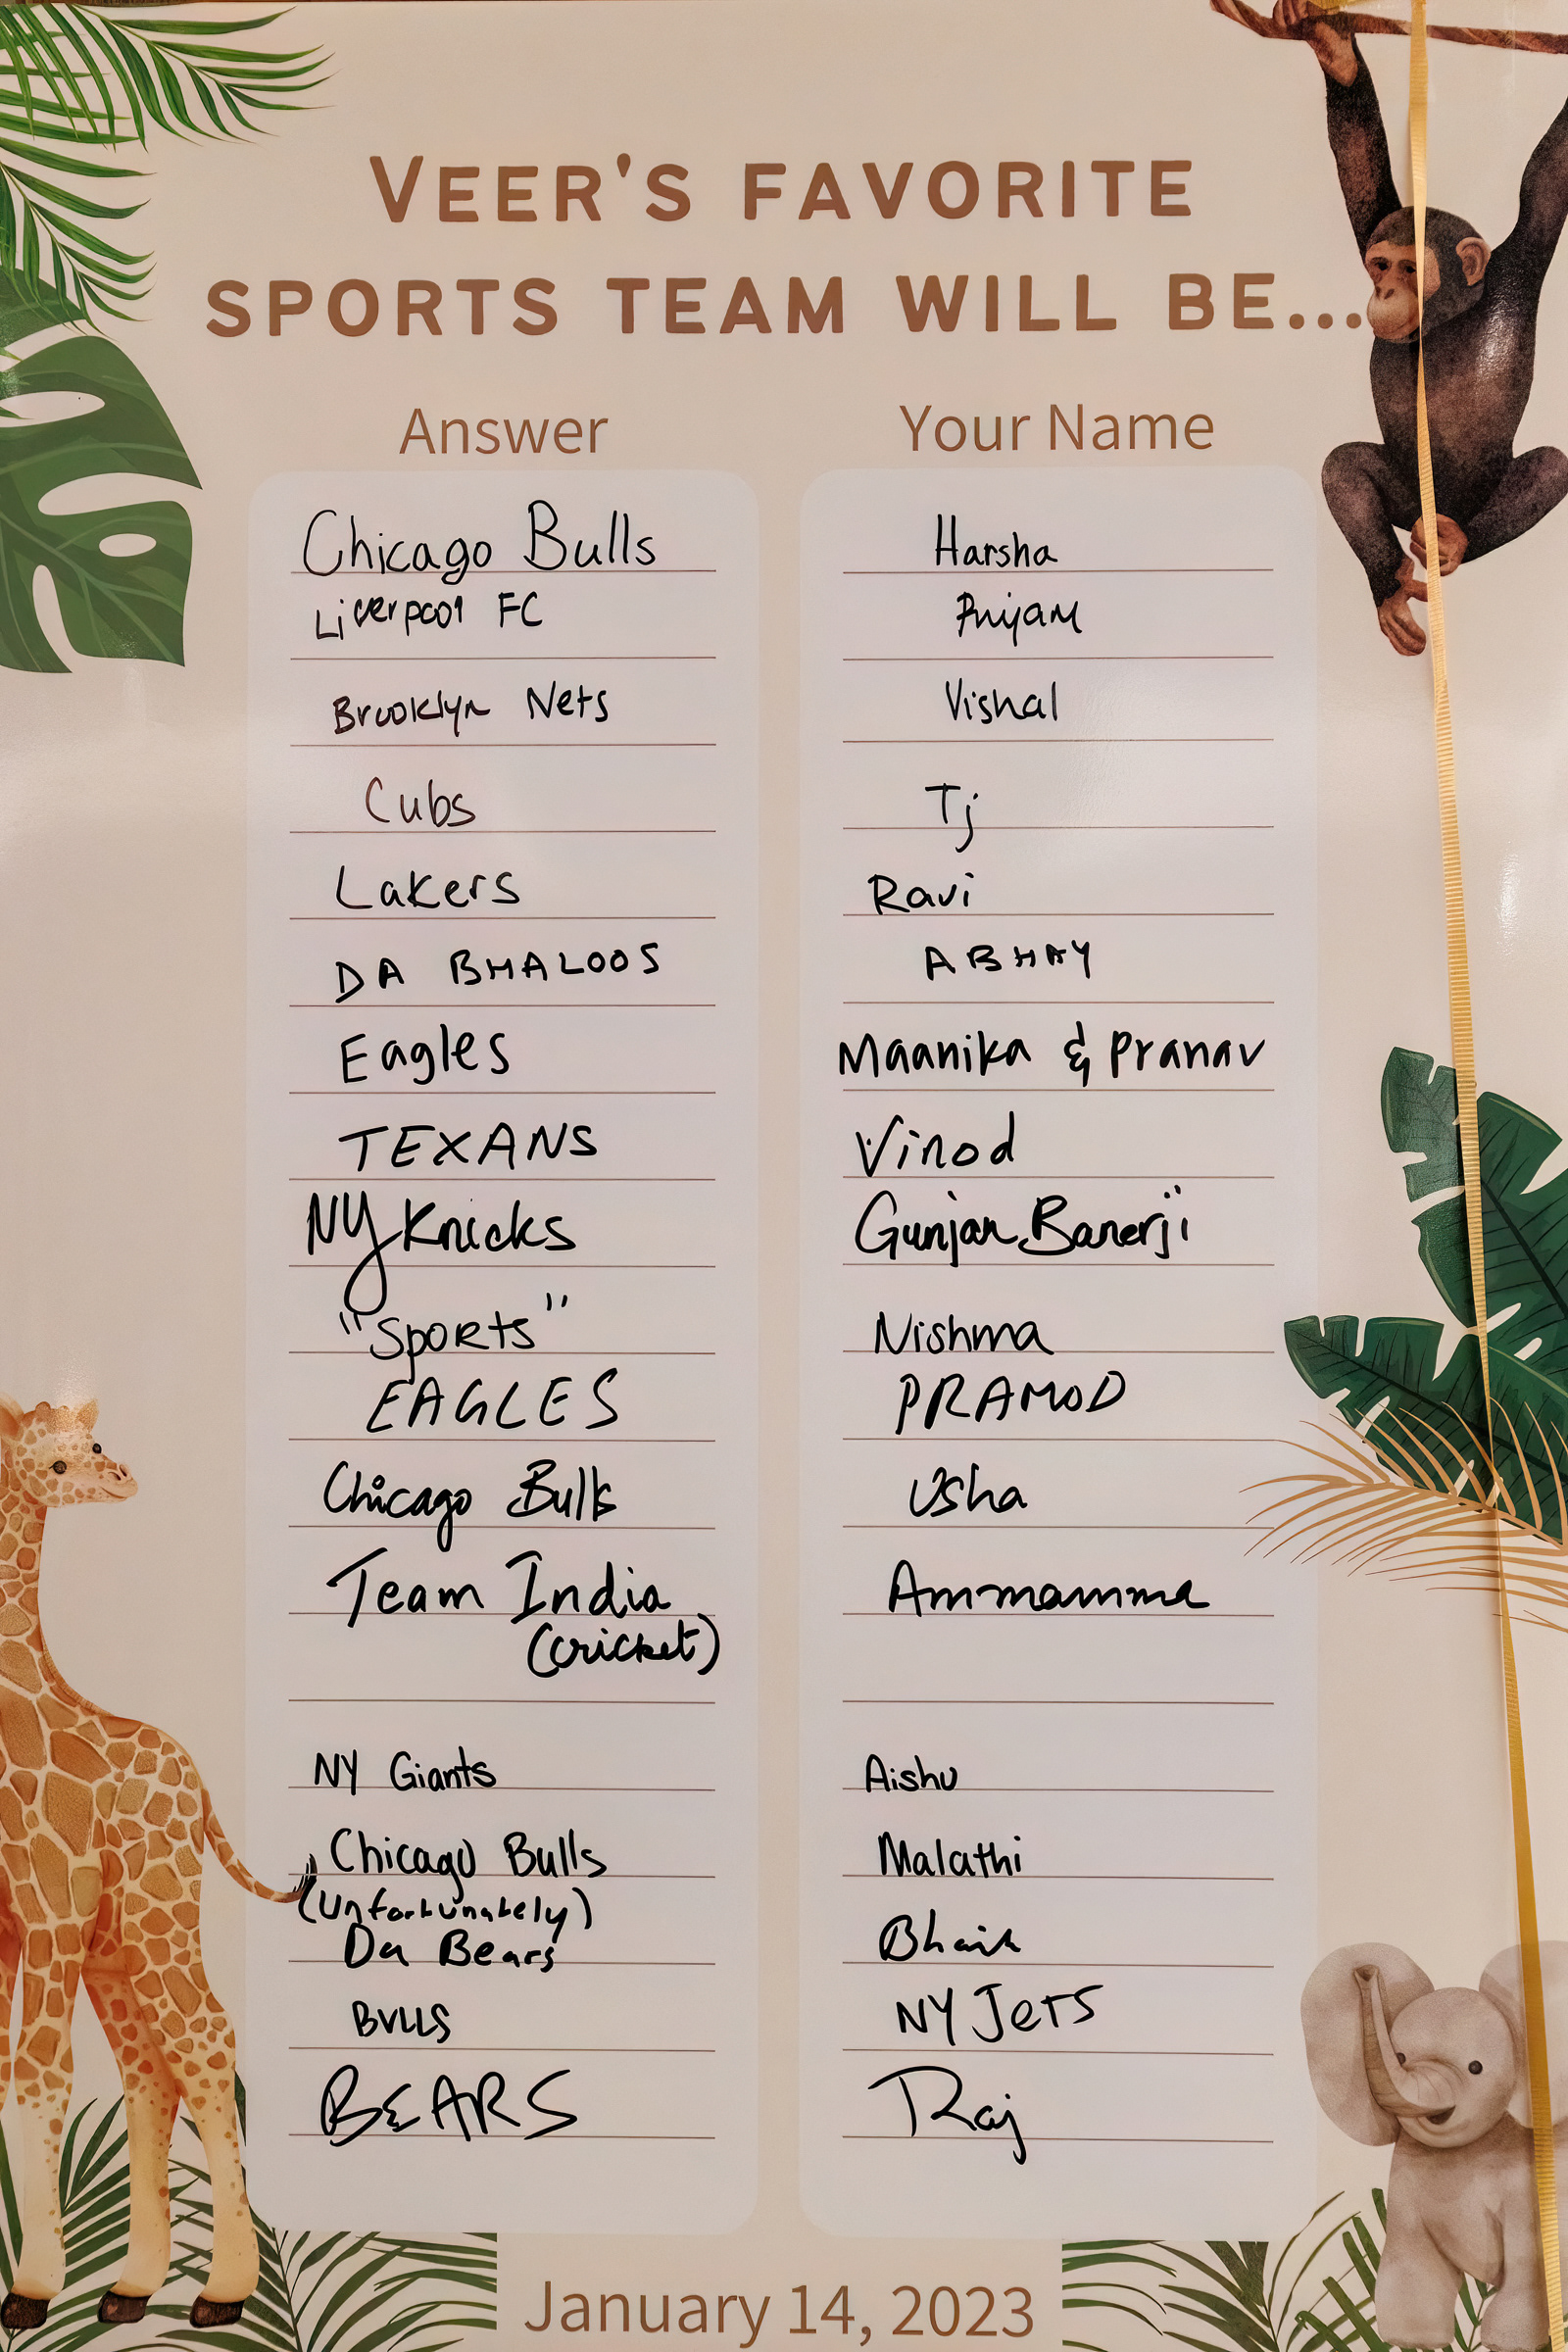 VEER'S FAVORITE
SPORTS TEAM WILL BE...
Answer Your Name
Chicago Bulls Harsha
Liverpool FC Priyam
Brooklyn Nets Vishal
Cubs Tj
Lakers Ravi
DA BHALOOS ABHAY
Eagles Maanika & Pranav
TEXANS Vinod
NY Knicks Gunjan Banerji
"Sports" Nishma
EAGLES PRAMOD
Chicago Bulls Usha
Team India Ammamma
(cricket)
NY Giants Aishu
Chicago Bulls Malathi
(Unfortunately)
Da Bears
BULLS NY JeTS
BEARS Raj
January 14, 2023